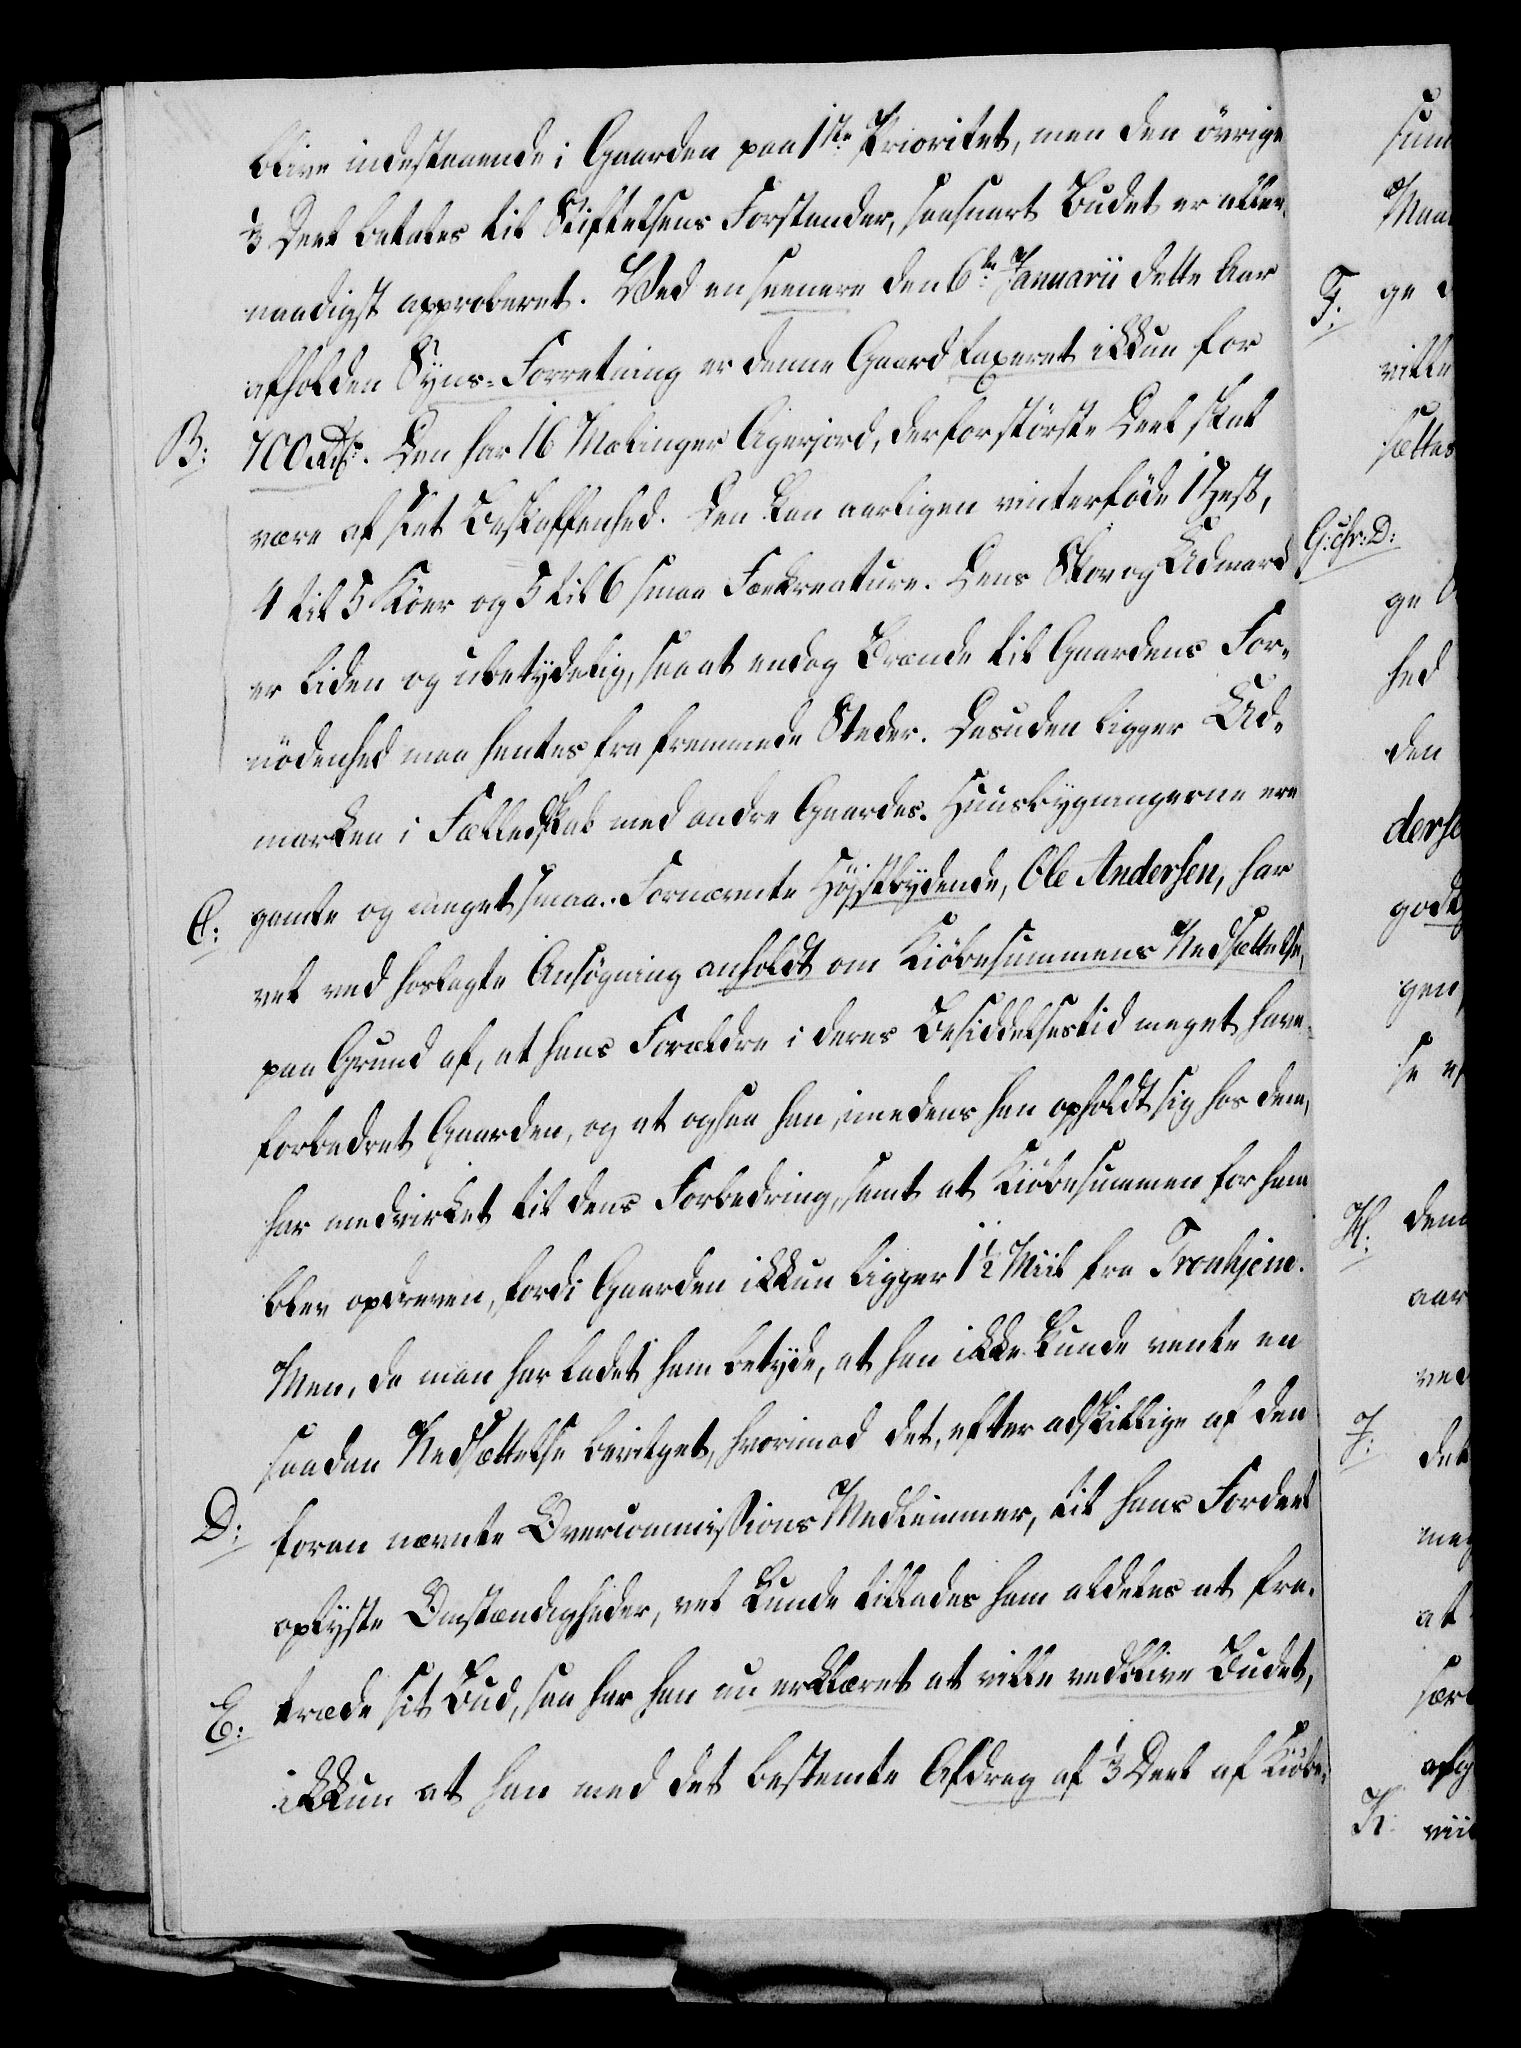 blive indestaaende i Gaarden paa 1ste Prioritet, men den övrige
⅓ Deel betales til Stiftelsens Forstander, saasnart Budet er aller-
naadigst approberet. Ved en seenere den 6te Januarii dette Aar
afholden Syns-Forretning er denne Gaard taxeret ikkun for
B: 700 Rd. Den har 16 Mælinger Agerjord, der for störste Deel skal
være af slet Beskaffenhed. Den kan aarligen vinterföde 1 Hest,
4 til 5 Köer og 5 til 6 smaa Fæekreature. Dens Skov og Udmark
er liden og ubetydelig, saa at endog Brænde til Gaardens For-
nödenhed maa hentes fra fremmede Steder. Desuden ligger Ud-
marken i Fælledskab med andre Gaardes. Huusbygningerne ere
gamle og meget smaa. Fornævnte Höjstbydende, Ole Andersen, har
C: vel ved hoslagte Ansögning anholdt om Kiöbesummens Nedsættelse,
paa Grund af, at hans Forældre i deres Besiddelsestid meget have
forbedret Gaarden, og at ogsaa han, imedens han opholdt sig hos dem,
har medvirket til dens Forbedring, samt at Kiöbesummen for ham
blev opdreven, fordi Gaarden ikkun ligger 1½ Miil fra Tronhjem.
Men, da man har ladet ham betyde, at han ikke kunde vente en
saadan Nedsættelse bevilget, hvorimod det, efter adskillige af den
D: foran nævnte Overcommissions Medlemmer, til hans Fordeel
oplyste Omstændigheder, vel kunde tillades ham aldeles at fra-
E: træde sit Bud, saa har han nu erklæret at ville vedblive Budet,
ikkun at han med det bestemte Afdrag af ⅓ Deel af Kiöbe-
sum
Maa
F: ge
ville
sættes
G: chr: D:
ge
hed
den
derse
godt
gen,
se
H: dem
aar
ved
J: det
meg
at
K: vii